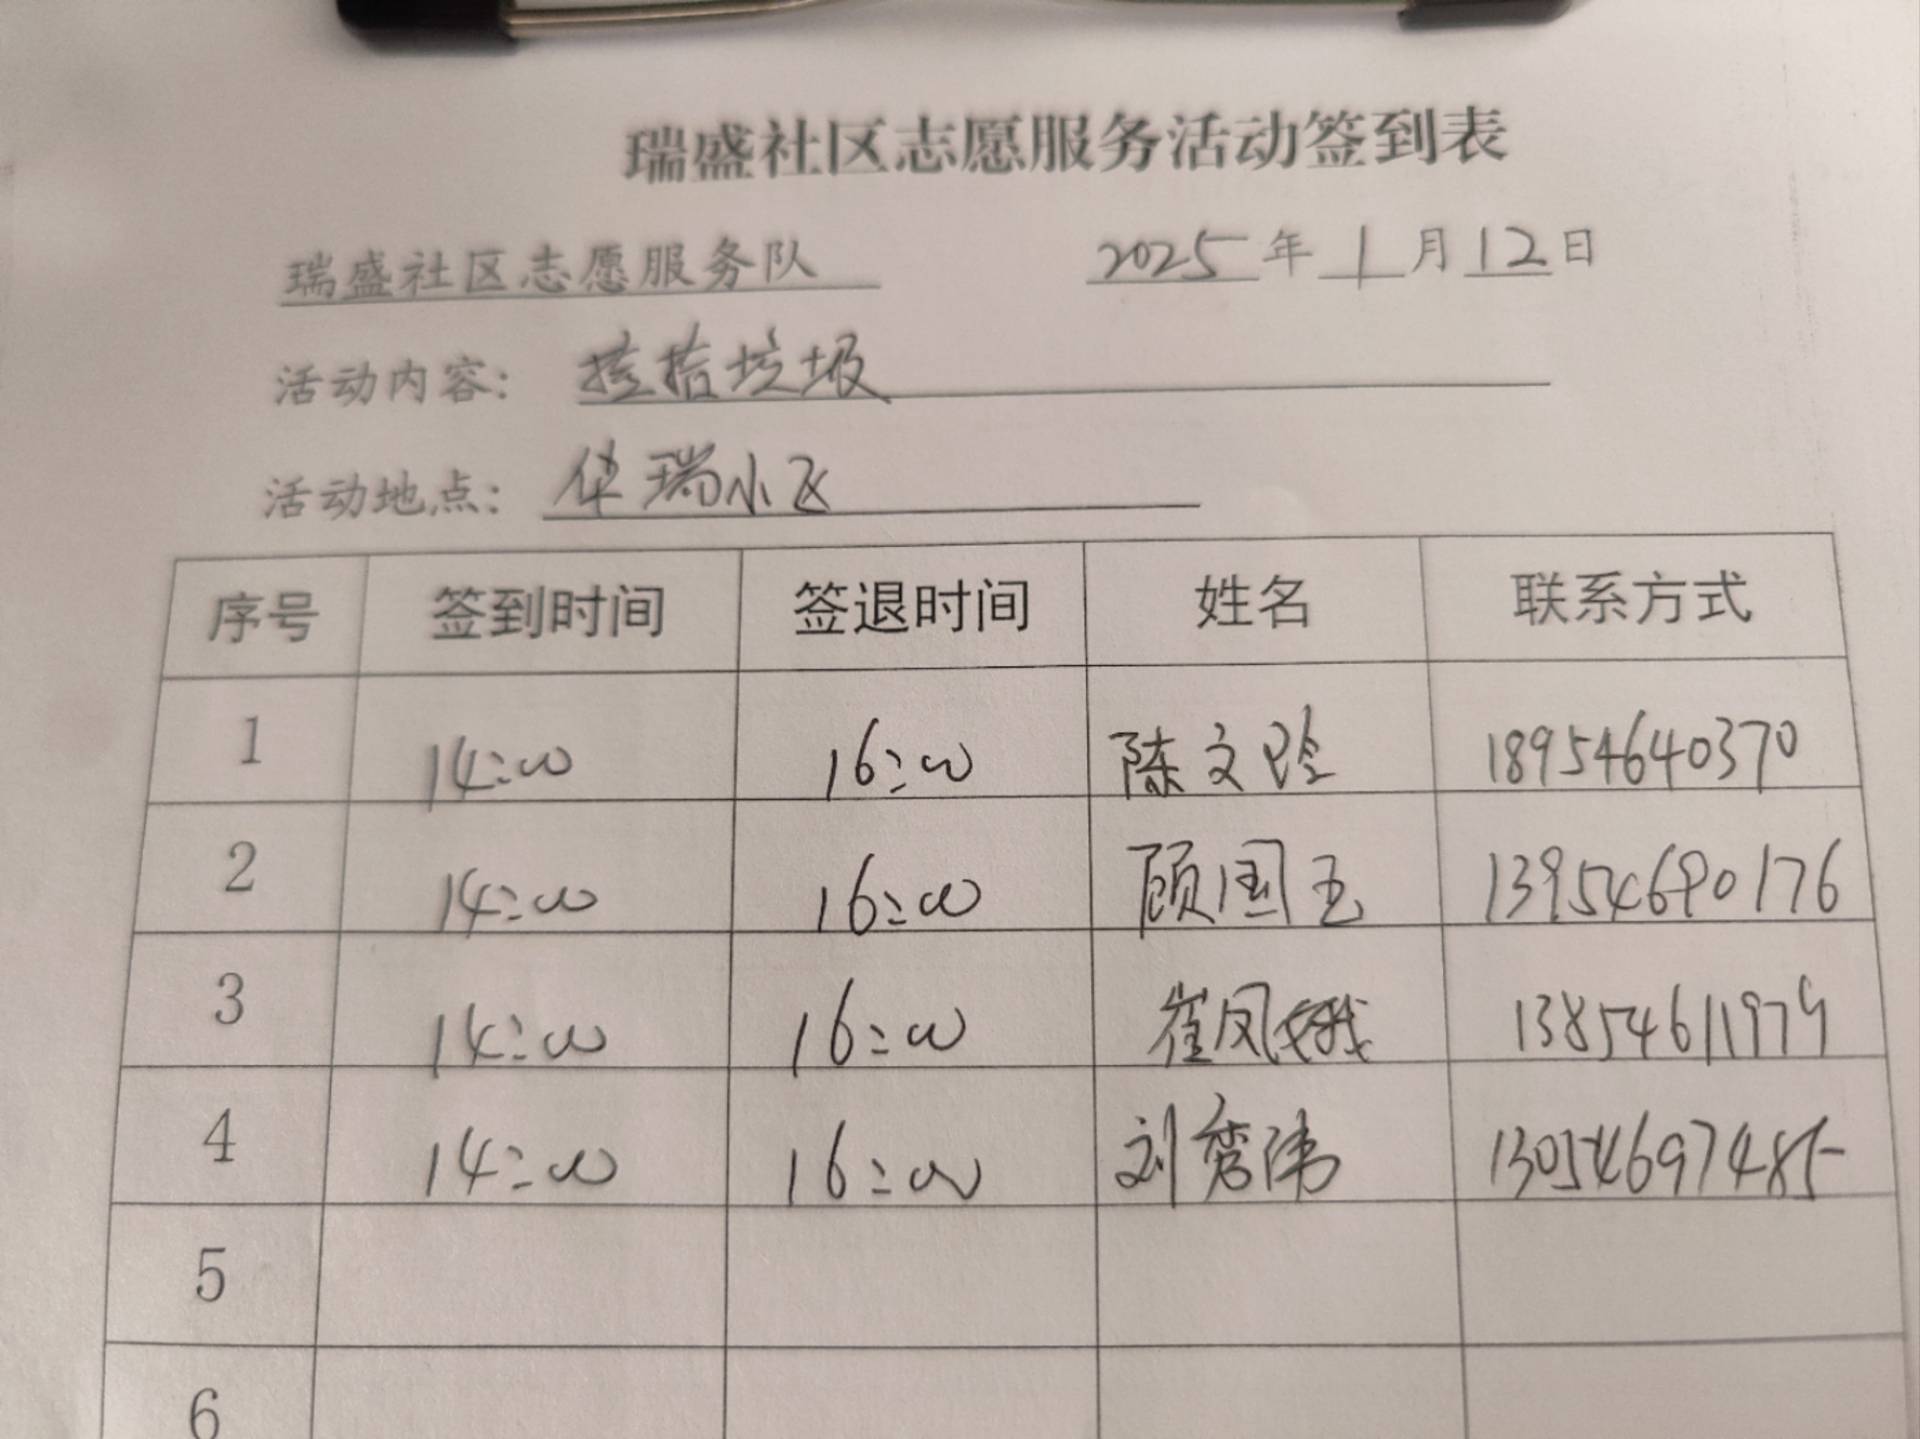 瑞盛社区志愿服务活动签到表
瑞盛社区志愿服务队 2025年1月12日
活动内容： 捡拾垃圾
活动地点： 华瑞小区
序号 签到时间 签退时间 姓名 联系方式
1 14:00 16:00 陈文玲 18954640370
2 14:00 16:00 顾国玉 13954690176
3 14:00 16:00 崔凤娥 13854611979
4 14:00 16:00 刘秀伟 13054697485
5
6